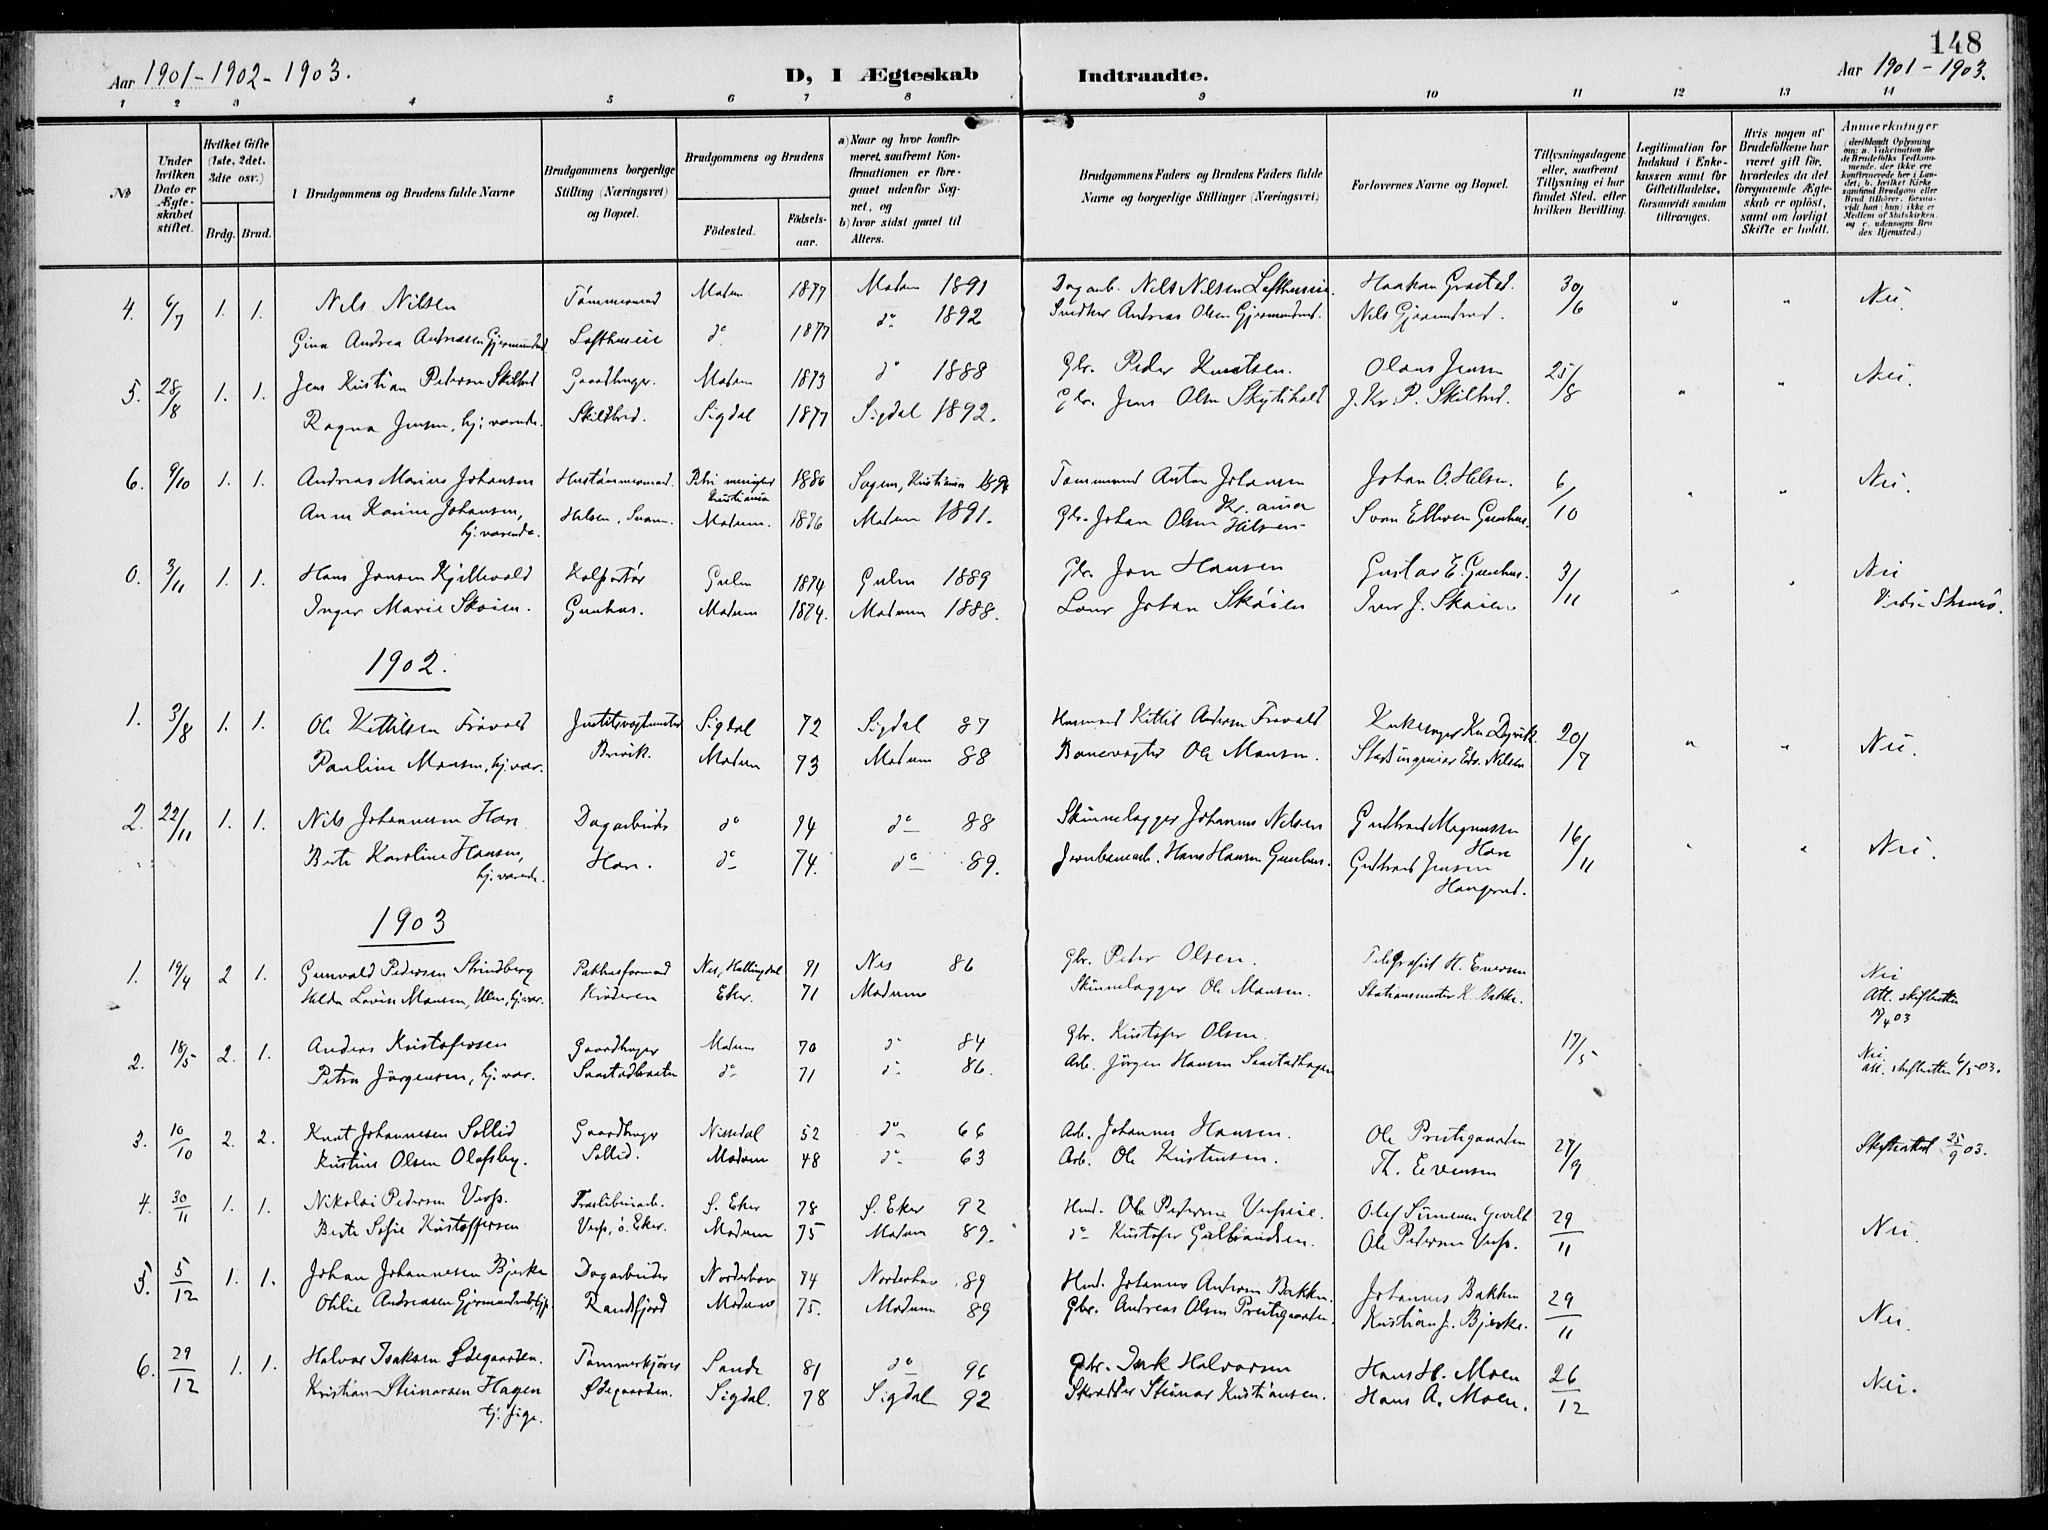 148
Aar 1901-1902-1903.
D, I Ægteskab Indtraadte.
Aar 1901-1903.
1 2 3 4 5 6 7 8 9 10 11 12 13 14
№
Under hvilken Dato er Ægteskabet stiftet.
Hvilket Gifte (1ste, 2det, 3die osv.)
Brdg. Brud.
Brudgommens og Brudens fulde Navne
Brudgommens borgerlige Stilling (Næringsvei) og Bopæl.
Brudgommens og Brudens
Födested. Födselsaar.
a) Naar og hvor konfirmeret, saafremt Konfirmationen er foregaaet udenfor Sognet, og
b) hvor sidst gaaet til Alters.
Brudgommens Faders og Brudens Faders fulde Navne og borgerlige Stillinger (Næringsvei)
Forlovernes Navne og Bopæl.
Tillysningsdagene eller, saafremt Tillysning ei har fundet Sted, efter hvilken Bevilling.
Legitimation for Indskud i Enkekassen samt for Giftetilladelse, forsaavidt saadan tiltrænges.
Hvis nogen af Brudefolkene har været gift för, hvorledes da det foregaaende Ægteskab er oplöst, samt om lovligt Skifte er holdt.
Anmærkninger
4. 6/7 1. 1. Nils Nilsen Tømmermand Modum 1877 Modum 1891 Dagarb. Nils Nilsen Lofthuseie. Haakon Grøsted. 30/6 " " Nei.
Gina Andrea Andreasen Gjermundrud Lofthuseie do 1877 do 1892 Andreas Olsen Gjermundrud. Nils Gjermundrud.
5. 28/8 1. 1. Jens Kristian Petersen Skilbred Gaardbruger. Modum 1873 do 1888 Gbr. Peder Knutsen. Olaus Jensen 25/8 " " Nei.
Ragna Jensen, hj. værende. Skilbred. Sigdal 1877 Sigdal 1892. Gbr. Jens Olsen J. Kr. P. Skilbred.
6. 9/10 1. 1. Andreas Marius Johansen Hustømmermand. Petri menighed Kristiania 1880 Sagene, Kristiania Tømmermand Anton Johansen Kr.ania Johan O. Hilsen. 6/10 " " Nei.
Anna Karine Johansen, hj. værende. Hilsen, Snarum. Modum. 1876 Modum 1891. Gbr. Johan Olsen Hilsen Sven Ellevsen Gunhus.
0. 3/11 1. 1. Hans Jonsen Kjillevold Kolportør Gulen 1874 Gulen 1889 Gbr. Jon Hansen Gustav E. Gunhus. 3/11 " " Nei
Inger Marie Skøien. Gunhus. Modum 1874. Modum 1888. Johan Skøien Iver J. Skøien
1902.
1. 3/8 1. 1. Ole Kittilsen Frøvold Brevik. Sigdal 72 Sigdal 87 Husmand Kittil Andersen Frøvold 20/7 " " Nei.
Pauline Monsen, hj. vær. Modum 73 Modum 88 Banevogter Ole Monsen. Stadsingeniør Edv. Nilsen.
2. 22/11 1. 1. Nils Johannesen Hære Dagarbeider do 74 do 88 Skinnelægger Johannes Nilsen Gudbrand Magnussen Hære 16/11 " " Nei.
Berte Karoline Hansen, hj. værende. Hære. do 74. do 89. Jernbanearb. Hans Hansen Gunhus. Gudbrand Jensen Haugerud.
1903
1. 19/4 2 1. Gunvald Pedersen Strindberg Pakhusformand Nes, Hallingdal 71 Nes 86 Gbr. Peter Olsen. Telegrafist H. Evensen Nei
Hilda Lovise Monsen, Ulen, hj. vær. Krøderen Eker. 71 Modum Skinnelægger Ole Monsen. Stationsmester K. Bakke. Att. skifteretten 18/4 03
2. 18/5 2. 1. Anders Kristofersen Gaardbruger Modum 70 do 84 Gbr. Kristofer Olsen. 17/5 Nei.
Petra Jørgensen, hj. vær. do 71 do 86. Arb. Jörgen Hansen att. skifteretten 6/5 03.
3. 10/10 2. 2. Knut Johannesen Sollid Gaardbruger Nissedal 52 do 66 Arb. Johannes Hansen. Ole Prestegaarden 27/9 Skifteattest 25/9 03.
Kristine Olsen Olafsby. Sollid. Modum 48 do 63 Arb. Ole Kristensen. Th. Evensen
4. 30/11 1. 1. Nikolai Pedersen Træsliberiarb. Ö. Eker 78 Ö. Eker 92 Hmd. Ole Pedersen 29/11 Nei.
Berte Sofie Kristoffersen ö. Eker. Modum 75 Modum 89. do Kristofer Gulbrandsen. Ole Pedersen
5. 5/12 1. 1. Johan Johannesen Bjerke Dagarbeider Norderhov 74 Norderhov 89 Hmd. Johannes Andersen Bakken. Johannes Bakken 29/11 Nei.
Othlie Andreasen Randsfjord Modum 75. Modum 89 Gbr. Andreas Olsen Prestegaarden. Kristian J. Bjerke.
6. 29/12 1. 1. Halvor Isaksen Ødegaarden. Tømmerkjører Sande 81 do 96 Gbr. Isak Halvorsen Hans H. Moen 26/12 Nei.
Kristiane Steinarsen Hagen tj. pige. Ødegaarden. Sigdal. 78 Sigdal 92 Skrædder Steinar Kristiansen. Hans A. Moen.